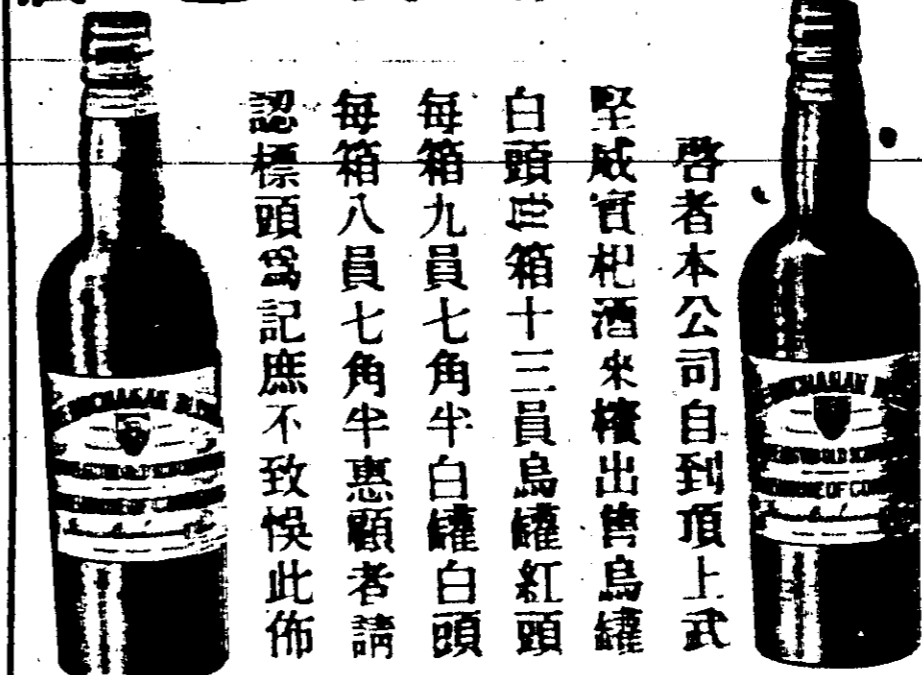 啓者本公司自到頂上武
堅威實杞酒來檳出售烏罐
白頭箱十三員烏罐紅頭
每箱九員七角半白罐白頭
每箱八員七角半惠顧者請
認標頭爲記庶不致悞此佈
BUCHANAN
BUCHANAN